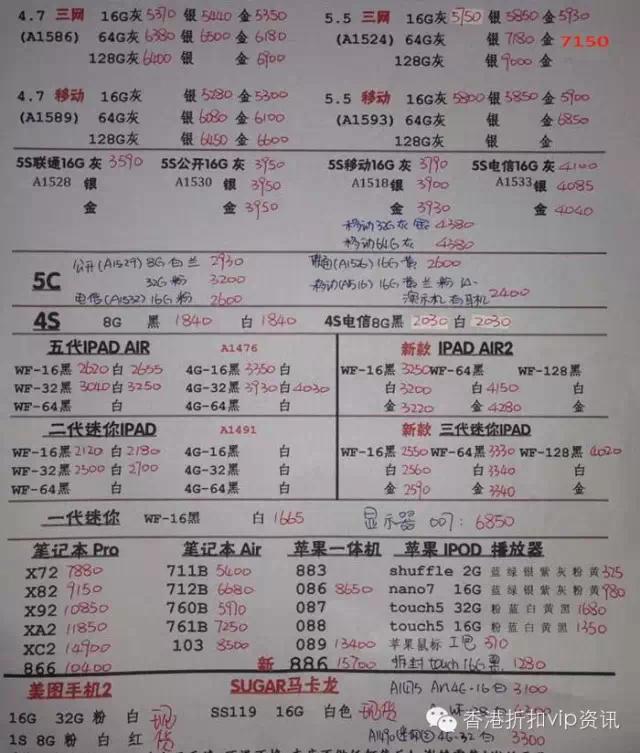 4.7 三网 16G灰 5370 银 5440 金 5350
(A1586) 64G灰 6380 银 6500 金 6180
128G灰 6400 银 金 6900
5.5 三网 16G灰 5750 银 5850 金 5930
(A1524) 64G灰 银 7180 金 7150
128G灰 银 9000 金
4.7 移动 16G灰 银 5280 金 5300
(A1589) 64G灰 银 6080 金 6100
128G灰 银 6450 金 6600
5.5 移动 16G灰 5800 银 5850 金 5900
(A1593) 64G灰 银 金 6850
128G灰 银 金
5S联通16G 灰 3590 5S公开16G 灰 3950 5S移动16G 灰 3790 5S电信16G 灰 4100
A1528 银 A1530 银 3950 A1518 银 3900 A1533 银 4085
金 金 3950 金 3930 金 4040
移动32G灰 金 4380
移动64G灰 4380
5C
公开(A1529) 8G 白 兰 2930
32G 粉 3200
电信(A1532) 16G 粉 2600
联通(A1526) 16G 黄 2600
移动(A1516) 16G 黄 兰 粉
演示机 有耳机 2400
4S 8G 黑 1840 白 1840 4S电信8G黑 2030 白 2030
五代IPAD AIR A1476
WF-16黑 2620 白 2655 4G-16黑 3350 白
WF-32黑 3040 白 3250 4G-32黑 3930 白 4030
WF-64黑 白 4G-64黑 白
新款 IPAD AIR2
WF-16黑 3250 WF-64黑 WF-128黑
白 3200 白 4150 白
金 3220 金 4280 金
二代迷你IPAD A1491
WF-16黑 2120 白 2180 4G-16黑 白
WF-32黑 2500 白 2700 4G-32黑 白
WF-64黑 白 4G-64黑 白
新款 三代迷你IPAD
WF-16黑 2550 WF-64黑 3330 WF-128黑 4020
白 2560 白 3340 白
金 2590 金 3340 金
一代迷你 WF-16黑 白 1665 显示器 007: 6850
笔记本 Pro
X72 7880
X82 9150
X92 10850
XA2 11850
XC2 14900
866 10400
笔记本 Air
711B 5400
712B 6680
760B 5970
761B 7250
103 8500
苹果一体机
883
086 8650
087
088
089 13400
新 886 15700
苹果 IPOD 播放器
shuffle 2G 蓝绿银紫灰粉黄 325
nano7 16G 蓝绿银紫灰粉黄 980
touch5 32G 粉蓝白黄黑 1680
touch5 16G 粉蓝白黄黑 1350
苹果鼠标 工包 310
拆封 touch 16G 黑 1280
美图手机2
16G 32G 粉 白 现
1S 8G 粉 白 红 货
SUGAR马卡龙
SS119 16G 白色 现货
4G-16白 3100
4G-32白 3300
香港折扣vip资讯